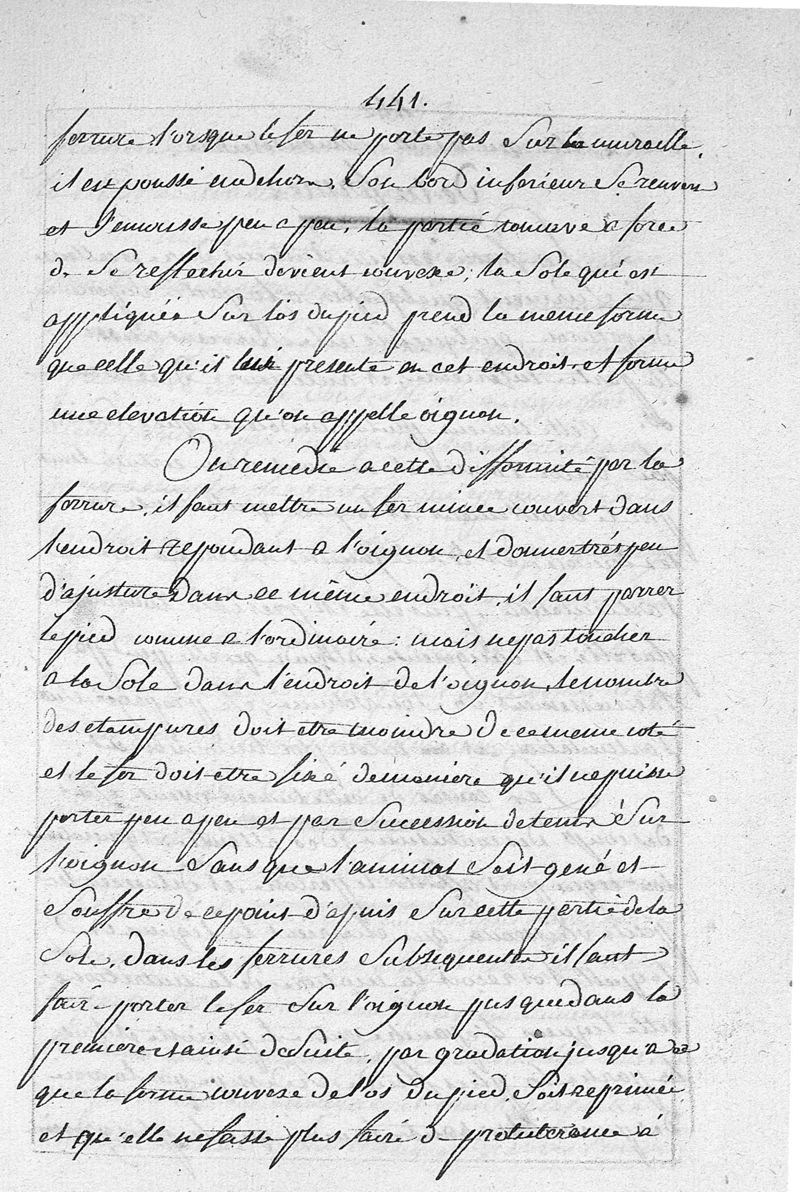 441.
ferrure, l'orsque le fer ne porte pas Sur la muraille,
il est poussé en dehors, Son bord inferieur Se renverse
et S'emousse peu a peu, la partie concave a force
de Se reflechir devient convexe; la Sole qui est
appliquée Sur l'os du pied prend la meme forme
que celle qu'il lui presente en cet endroit, et forme
une elevation qu'on appelle oignon.
On remedie a cette difformité par la
ferrure, il faut mettre un fer mince couvert dans
l'endroit repondant a l'oignon, et donner très peu
d'ajusture dans ce même endroit, il faut parrer
le pied comme a l'ordinaire: mais ne pas toucher
a la Sole dans l'endroit de l'oignon, le nombre
des etampures doit etre moindre de ce meme coté
et le fer doit etre fixé de maniere qu'il ne puisse
porter peu a peu et par Succession de tems é Sur
l'oignon Sans que l'animal Soit gené et
Souffre de ce point d'apuis Sur cette partie de la
Sole, dans les ferrures Subsequentes il faut
faire porter le fer Sur l'oignon plus que dans la
premiere et ainsi de Suite, par gradation jusqu'a ce
que la forme convexe de l'os du pied, Soit reprimée
et qu'elle ne fasse plus faire de protuberance à